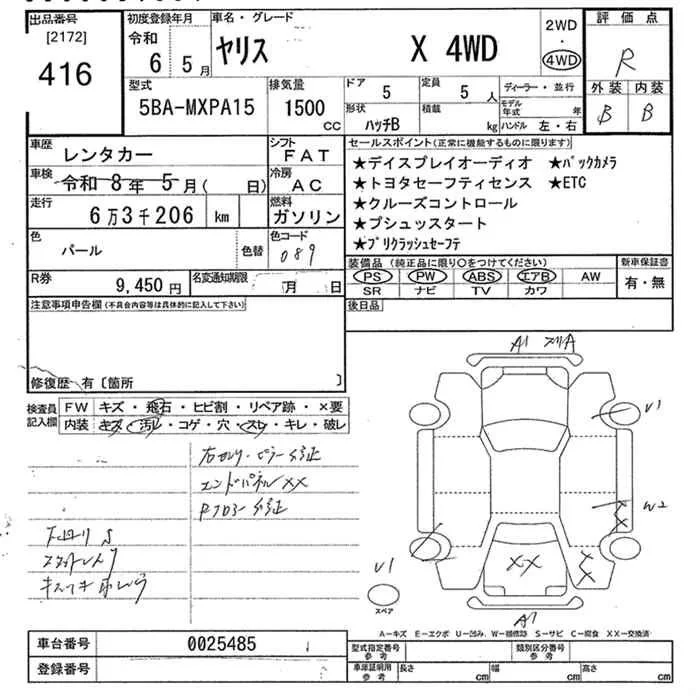 出品番号
[2172]
416
初度登録年月
令和
6 5月
車名・グレード
ヤリス X 4WD
2WD
・
4WD
評価点
R
外装 内装
B B
型式
5BA-MXPA15
排気量
1500
CC
ドア 5
定員 5 人
形状 ハッチB
積載 kg
ディーラー・並行
モデル年式 年
ハンドル 左・右
車歴 レンタカー
シフト FAT
車検 令和 8年 5月( 日)
冷房 AC
走行 6万3千206 km
燃料 ガソリン
色 パール
色替
色コード 089
R券 9,450円
名変通知期限 月 日
セールスポイント(正常に機能するものに限ります)
★ディスプレイオーディオ ★バックカメラ
★トヨタセーフティセンス ★ETC
★クルーズコントロール
★プシュッスタート
★プリクラッシュセーフテ
装備品(純正品に限り○をつけてください)
PS PW ABS エアB AW
SR ナビ TV カワ
新車保証書
有・無
後日品
注意事項申告欄(不具合内容等は具体的に記入して下さい)
修復歴 有〔箇所 〕
検査員
記入欄
FW キズ・飛石・ヒビ割・リペア跡・×要
内装 キズ・汚レ・コゲ・穴・スレ・キレ・破レ
エンドパネルXX
Rフロアー修正
A1
V1
W2
XX
V1
スペア
A1
A-キズ E-エクボ U-凹み W-補修跡 S-サビ C-腐食 XX-交換済
車台番号 0025485
登録番号
型式指定番号
参考
類別区分番号
参考
車庫証明用
参考
長さ cm
幅 cm
高さ cm